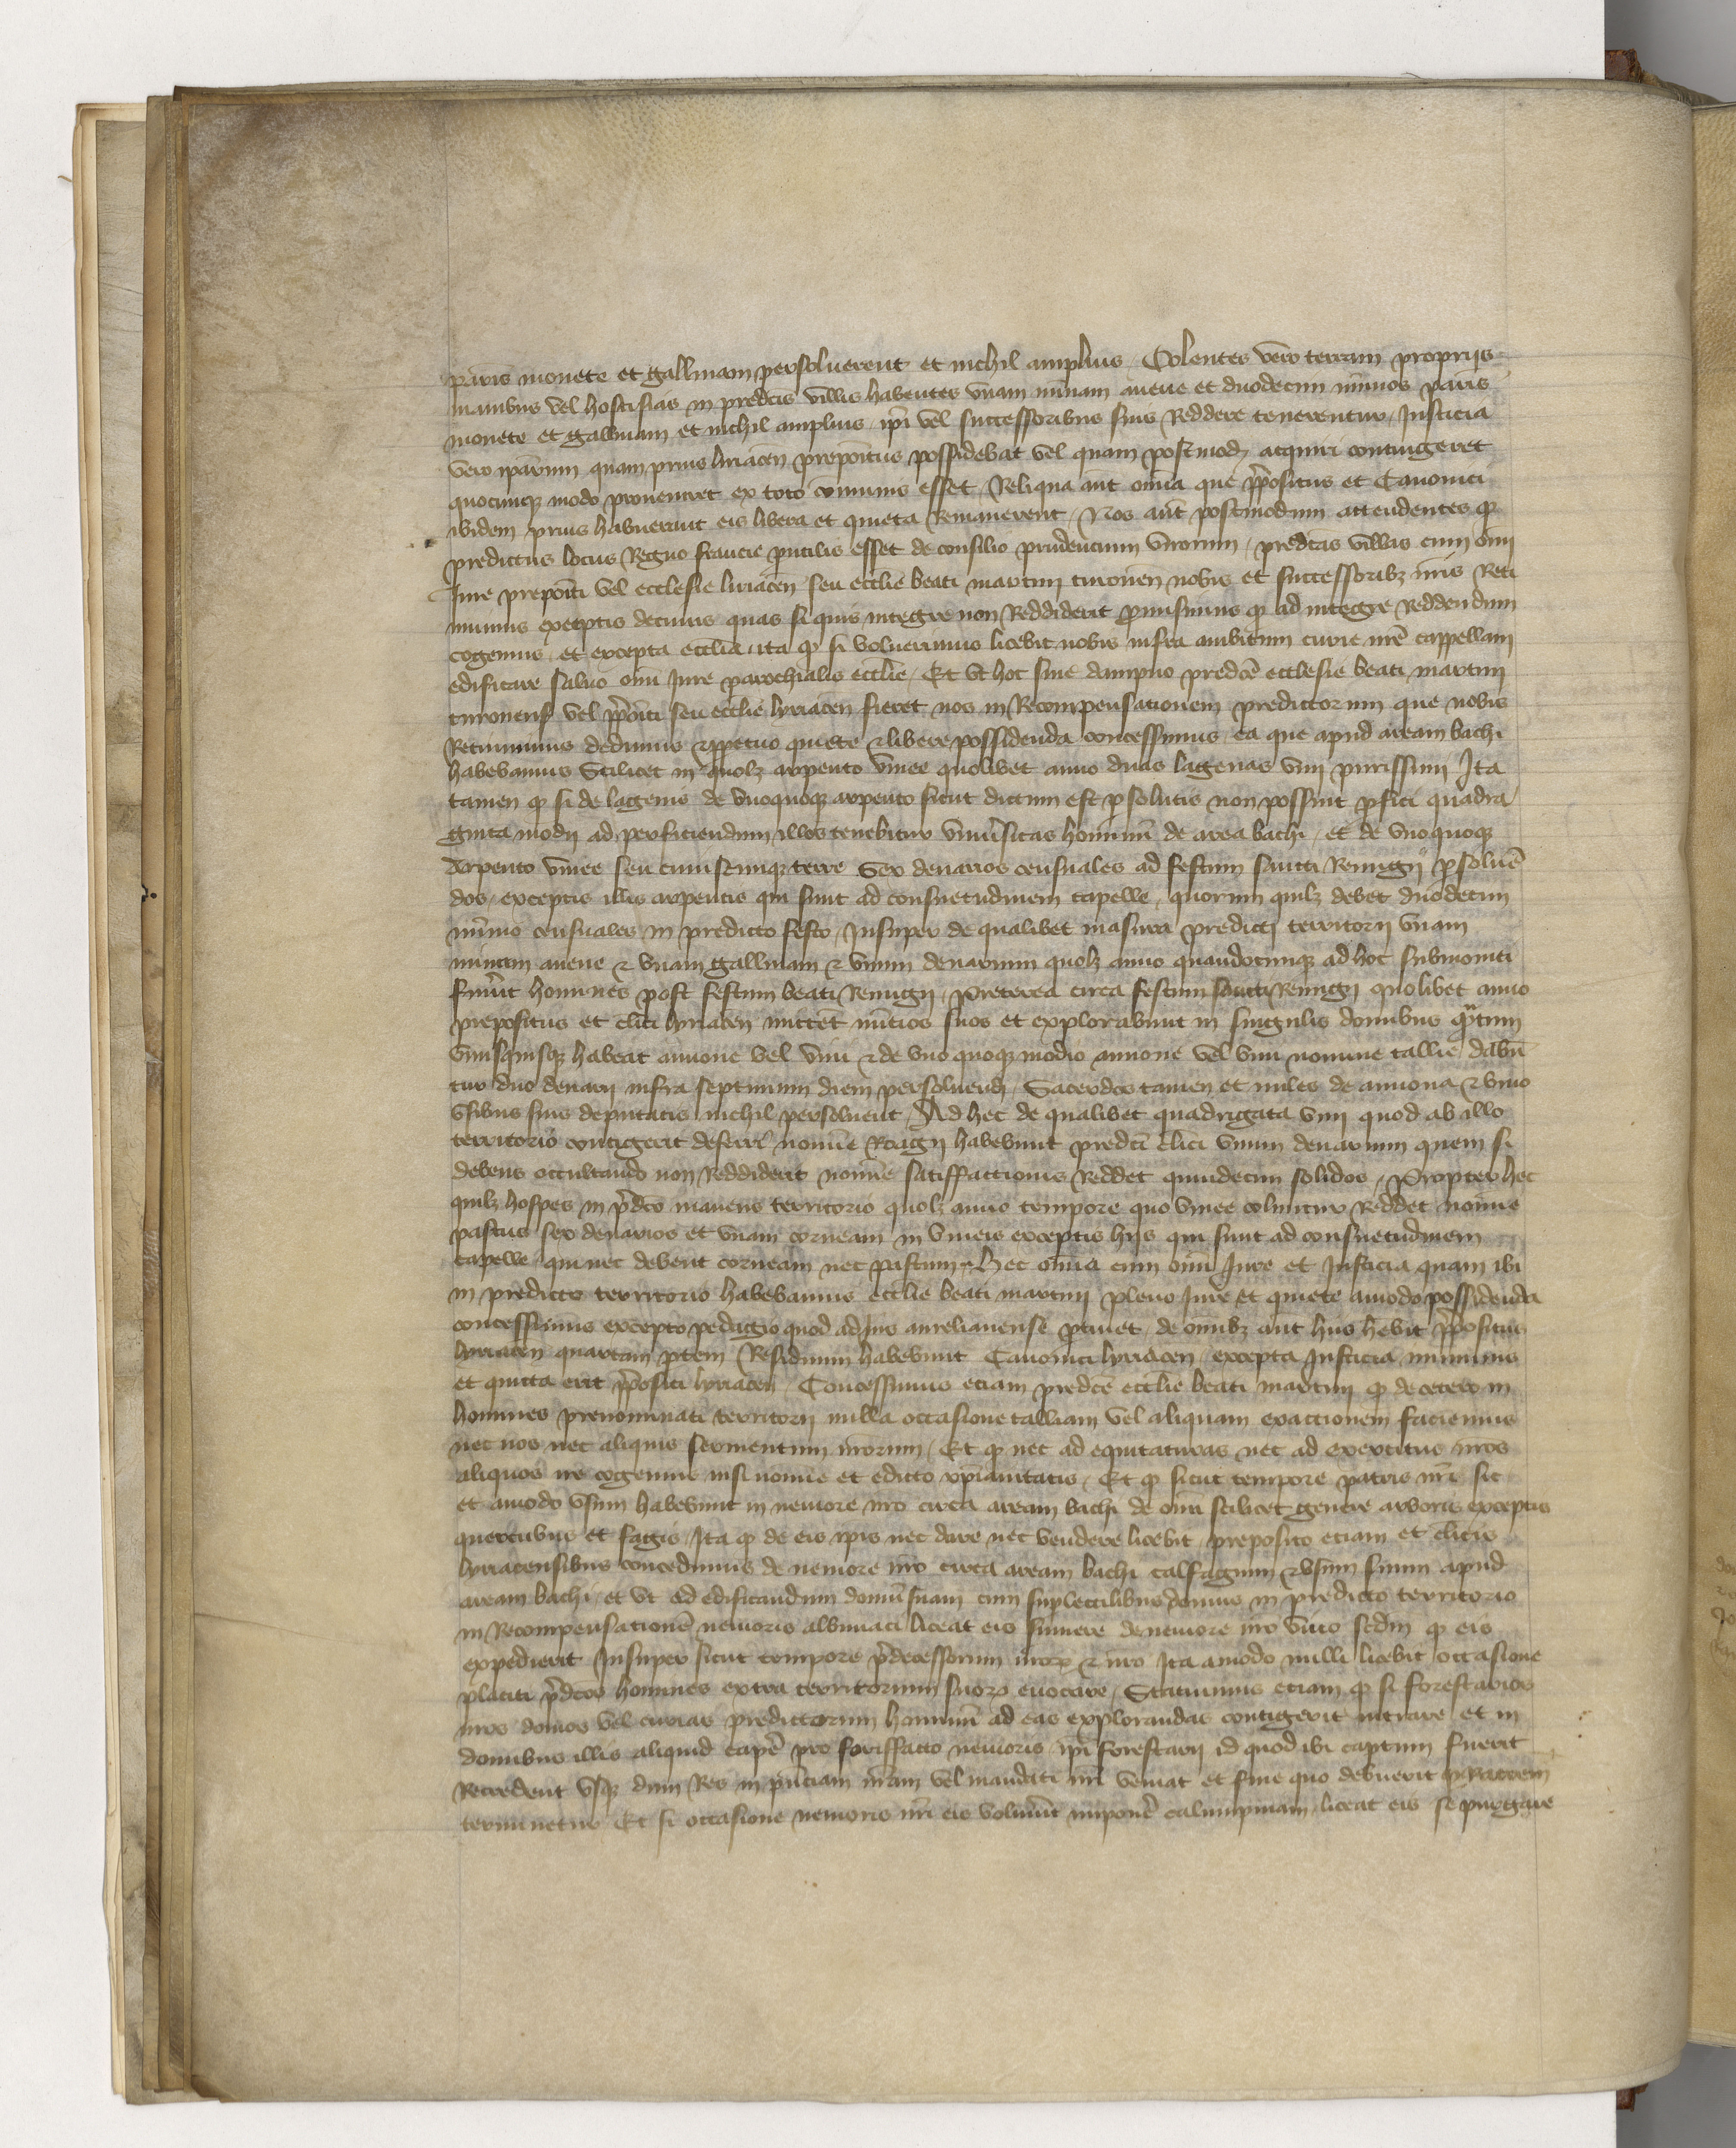 paris monete et gallinam persoluerent et nichil amplius Colentes vero terram proprijs
manibus vel hostisias in predcis villis habentes vnam minam auene et duodecim nūmos paris
monete et gallinam et nichil amplius ipi vel successoribus suis Reddere tenerentur Justicia
vero ipārum quam prius liriacen prepoitus possidebat vel quam postmodū acquiri contingeret
quocunqz modo proueniret ex toto cōmunis esset Reliqua aūt omīa que ppositus et Canonici
ibidem prius habuerunt eis libera et quieta Remanerent Nos aūt postmodum attendentes qp
predictus locus Regno francie putilis esset de consilio prudencium virorum predcas villas cum om̄i
Jure prepoiti vel ecclesie liriacen seu ecclie beati martini turonen nobis et successoribz nris Reti
nuimus exceptis decimis quas si quis integre non Reddiderit promisimus qp ad integre Reddendum
cogemus et excepta ecclia ita qp si voluerimus licebit nobis infra ambitum curie nre cappellam
edificare saluo om̄i Jure parochialis ecclie Et vt hoc sine dampno predce ecclesie beati martini
turonens vel ppoiti seu ecclie lyriacen fieret nos in Recompensationem predictorum que nobis
Retinuimus dedimus et ppetuo quiete et libere possidenda concessimus ea que apud aream bachi
habebamus Scilicet in quolz arpento vinee quolibet anno duas lagenas vini purissimi Ita
tamen qp si de lagenis de vnoquoqz arpento sicut dictum est psolutis non possint pfici quadra
ginta modij ad perficiendum illos tenebitur vniusitas hominū de area bachi et de vnoquoqz
arpento vinee seu cuiuscunqz terre sex denarios censuales ad festum sancti Remigij psoluē
dos exceptis illis arpentis qui sunt ad consuetudinem capelle quorum quilz debet duodecim
nūmos censuales in predicto festo Insuper de qualibet masura predicti territorij vnam
minam auene et vnam gallinam et vnum denarium quolz anno quandocunqz ad hoc submoniti
fuerit homines post festum beati Remigij Preterea circa festum sancti Remigij quolibet anno
prepositus et clici lyriacen mittet nūcios suos et explorabunt in singulis domibus qntum
vnusquisqz habeat annone vel vini et de vno quoqz modio annone vel vini nomine tallie dabū
tur duo denarij infra septimum diem persoluendi Sacerdos tamen et miles de annona et vino
vsibus suis deputatis nichil persoluent Ad hec de qualibet quadrigata vini quod ab illo
territorio contigerit deferri noīe Roagij habebunt predci clici vnum denarium quem si
debens occultando non Reddiderit noīe satisffactionis Reddet quindecim solidos Propter hec
quilz hospes in pdco manens territorio quolz anno tempore quo vinee colūtur Reddet noīe
pastus sex denarios et vnam corueam in vineis exceptis hijs qui sunt ad consuetudinem
capelle qui nec debent corueam nec pastum Hec omīa cum om̄i Jure et Justicia quam ibi
in predicto territorio habebamus ecclie beati martini pleno Jure et quiete amodo possidenda
concessimus excepto pedagio quod ad Jus aurelianense ptinet de omībz aūt hijs hēbit ppositus
lyriacen quartam ptem Residuum habebunt Canonici lyriacen excepta Justicia inmunis
et quitta erit ppositi lyriacen Concessimus eciam predce ecclie beati martini qp de cetero in
homines prenominati territorij nulla occasione talliam vel aliquam exactionem faciemus
nec nos nec aliquis seruientum nrorum Et qp nec ad equitaturas nec ad exercitus nros
aliquos ire cogemus nisi noīe et edicto xpianitatis Et qp sicut tempore patris nri sic
et amodo vsum habebunt in nemore nro circa aream bachi de om̄i scilicet genere arboris exceptis
quercubus et fagis Ita qp de eis ipis nec dare nec vendere licebit preposito eciam et clicis
lyriacensibus concedimus de nemore nro circa aream bachi calfagium et vsum suum apud
aream bachi et vt ad edificandum domū suam cum suplectilibus domus in predicto territorio
in Recompensationē nemoris albuniaci liceat eis sumere de nemore nro viuo scdm qp eis
expedierit Insuper sicut tempore pdecessorum nrorz et nro Ita amodo nulli licebit occasione
placiti pdcos homines extra territorium suorz euocare Statuimus eciam qp si forestarios
nros domos vel curias predictorum hominū ad eas explorandas contigerit intrare et in
domibus illis aliquid capē pro foriffacto nemoris ipi forestarij id quod ibi captum fuerit
Recredent vsqz dum Res in pnciam nram vel mandati nri veniat et fine quo debuerit
terminetur Et si occasione nemoris nri eis voluerit imponē calumpniam liceat eis se purgare